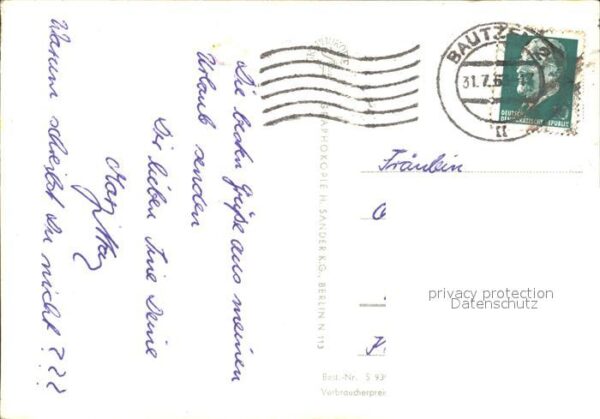 Die besten Grüße aus meinem
Urlaub senden
Dir lieben Deine
Warum schreibst Du nicht???
Fräulein
BAUTZEN
31.7.6
DEUTSCHE
DEMOKRATISCHE REPUBLIK
H. SANDER K.G., BERLIN N 113
Best.-Nr. S 93
Verbraucherpre
privacy protection
Datenschutz